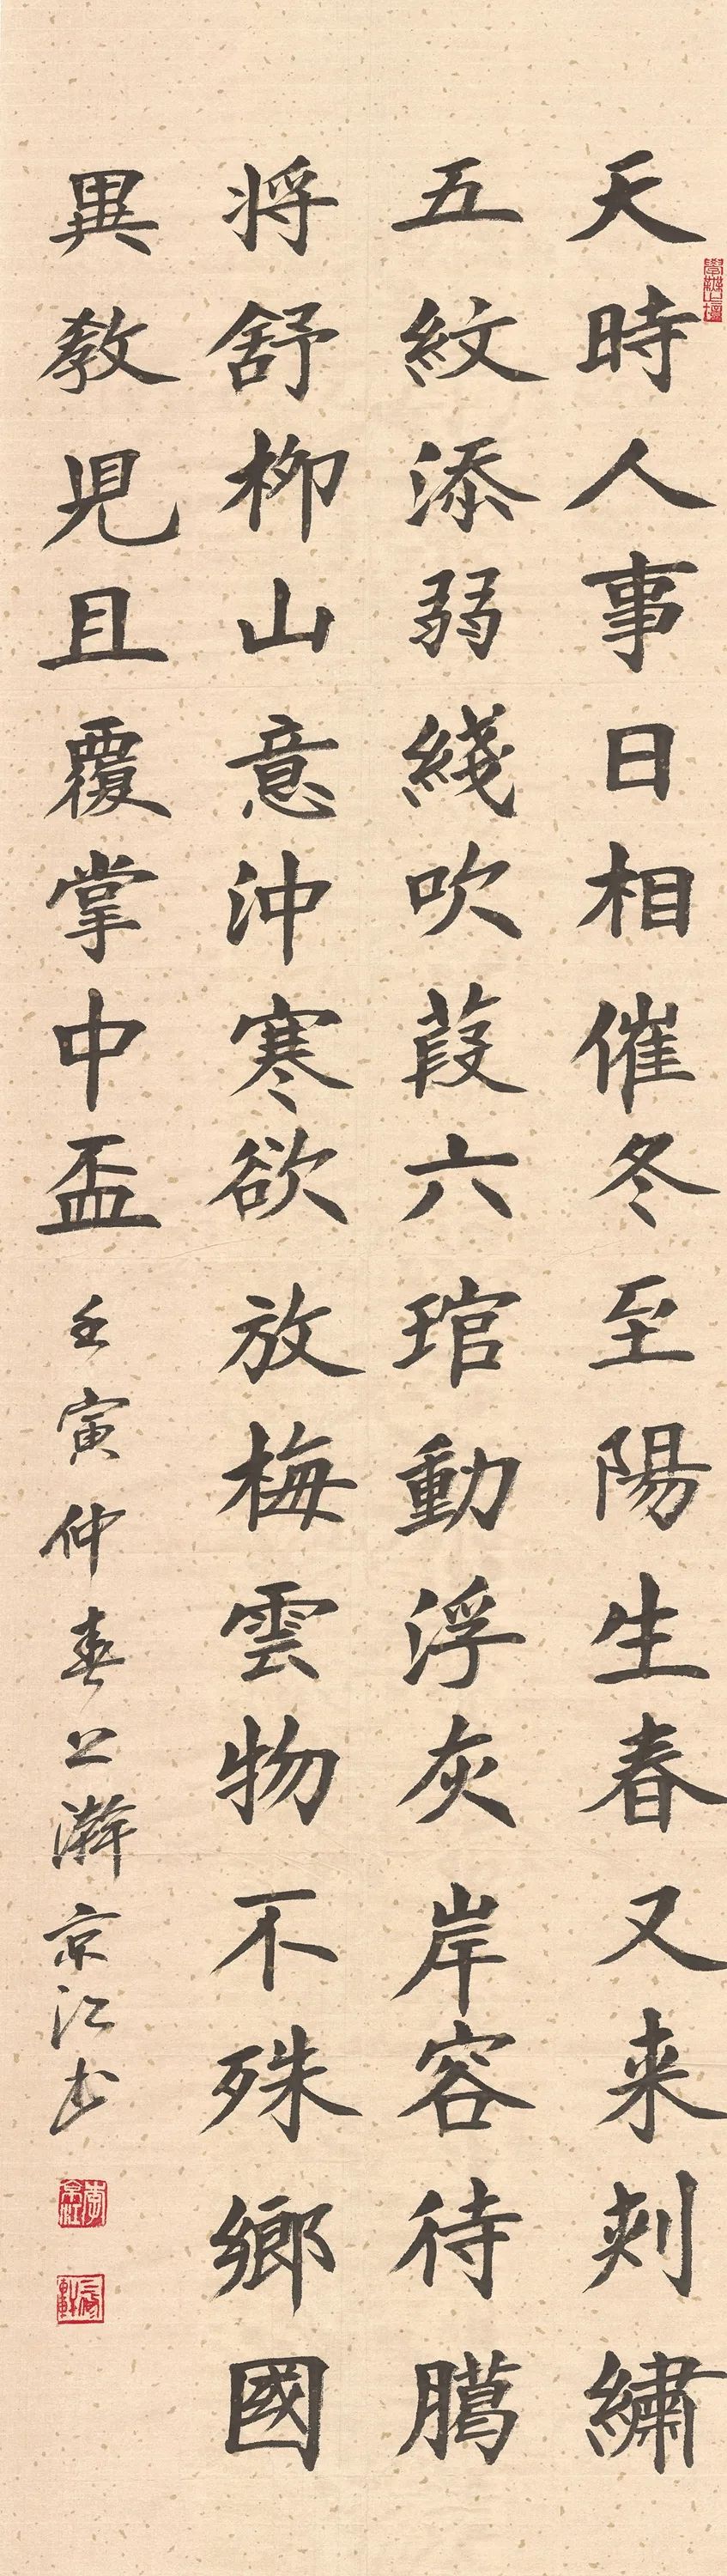 天時人事日相催冬至陽生春又来刾繡
五紋添弱綫吹葭六琯動浮灰岸容待臈
将舒柳山意沖寒欲放梅雲物不殊鄉國
異教児且覆掌中盃
壬寅仲春之瀚京江书